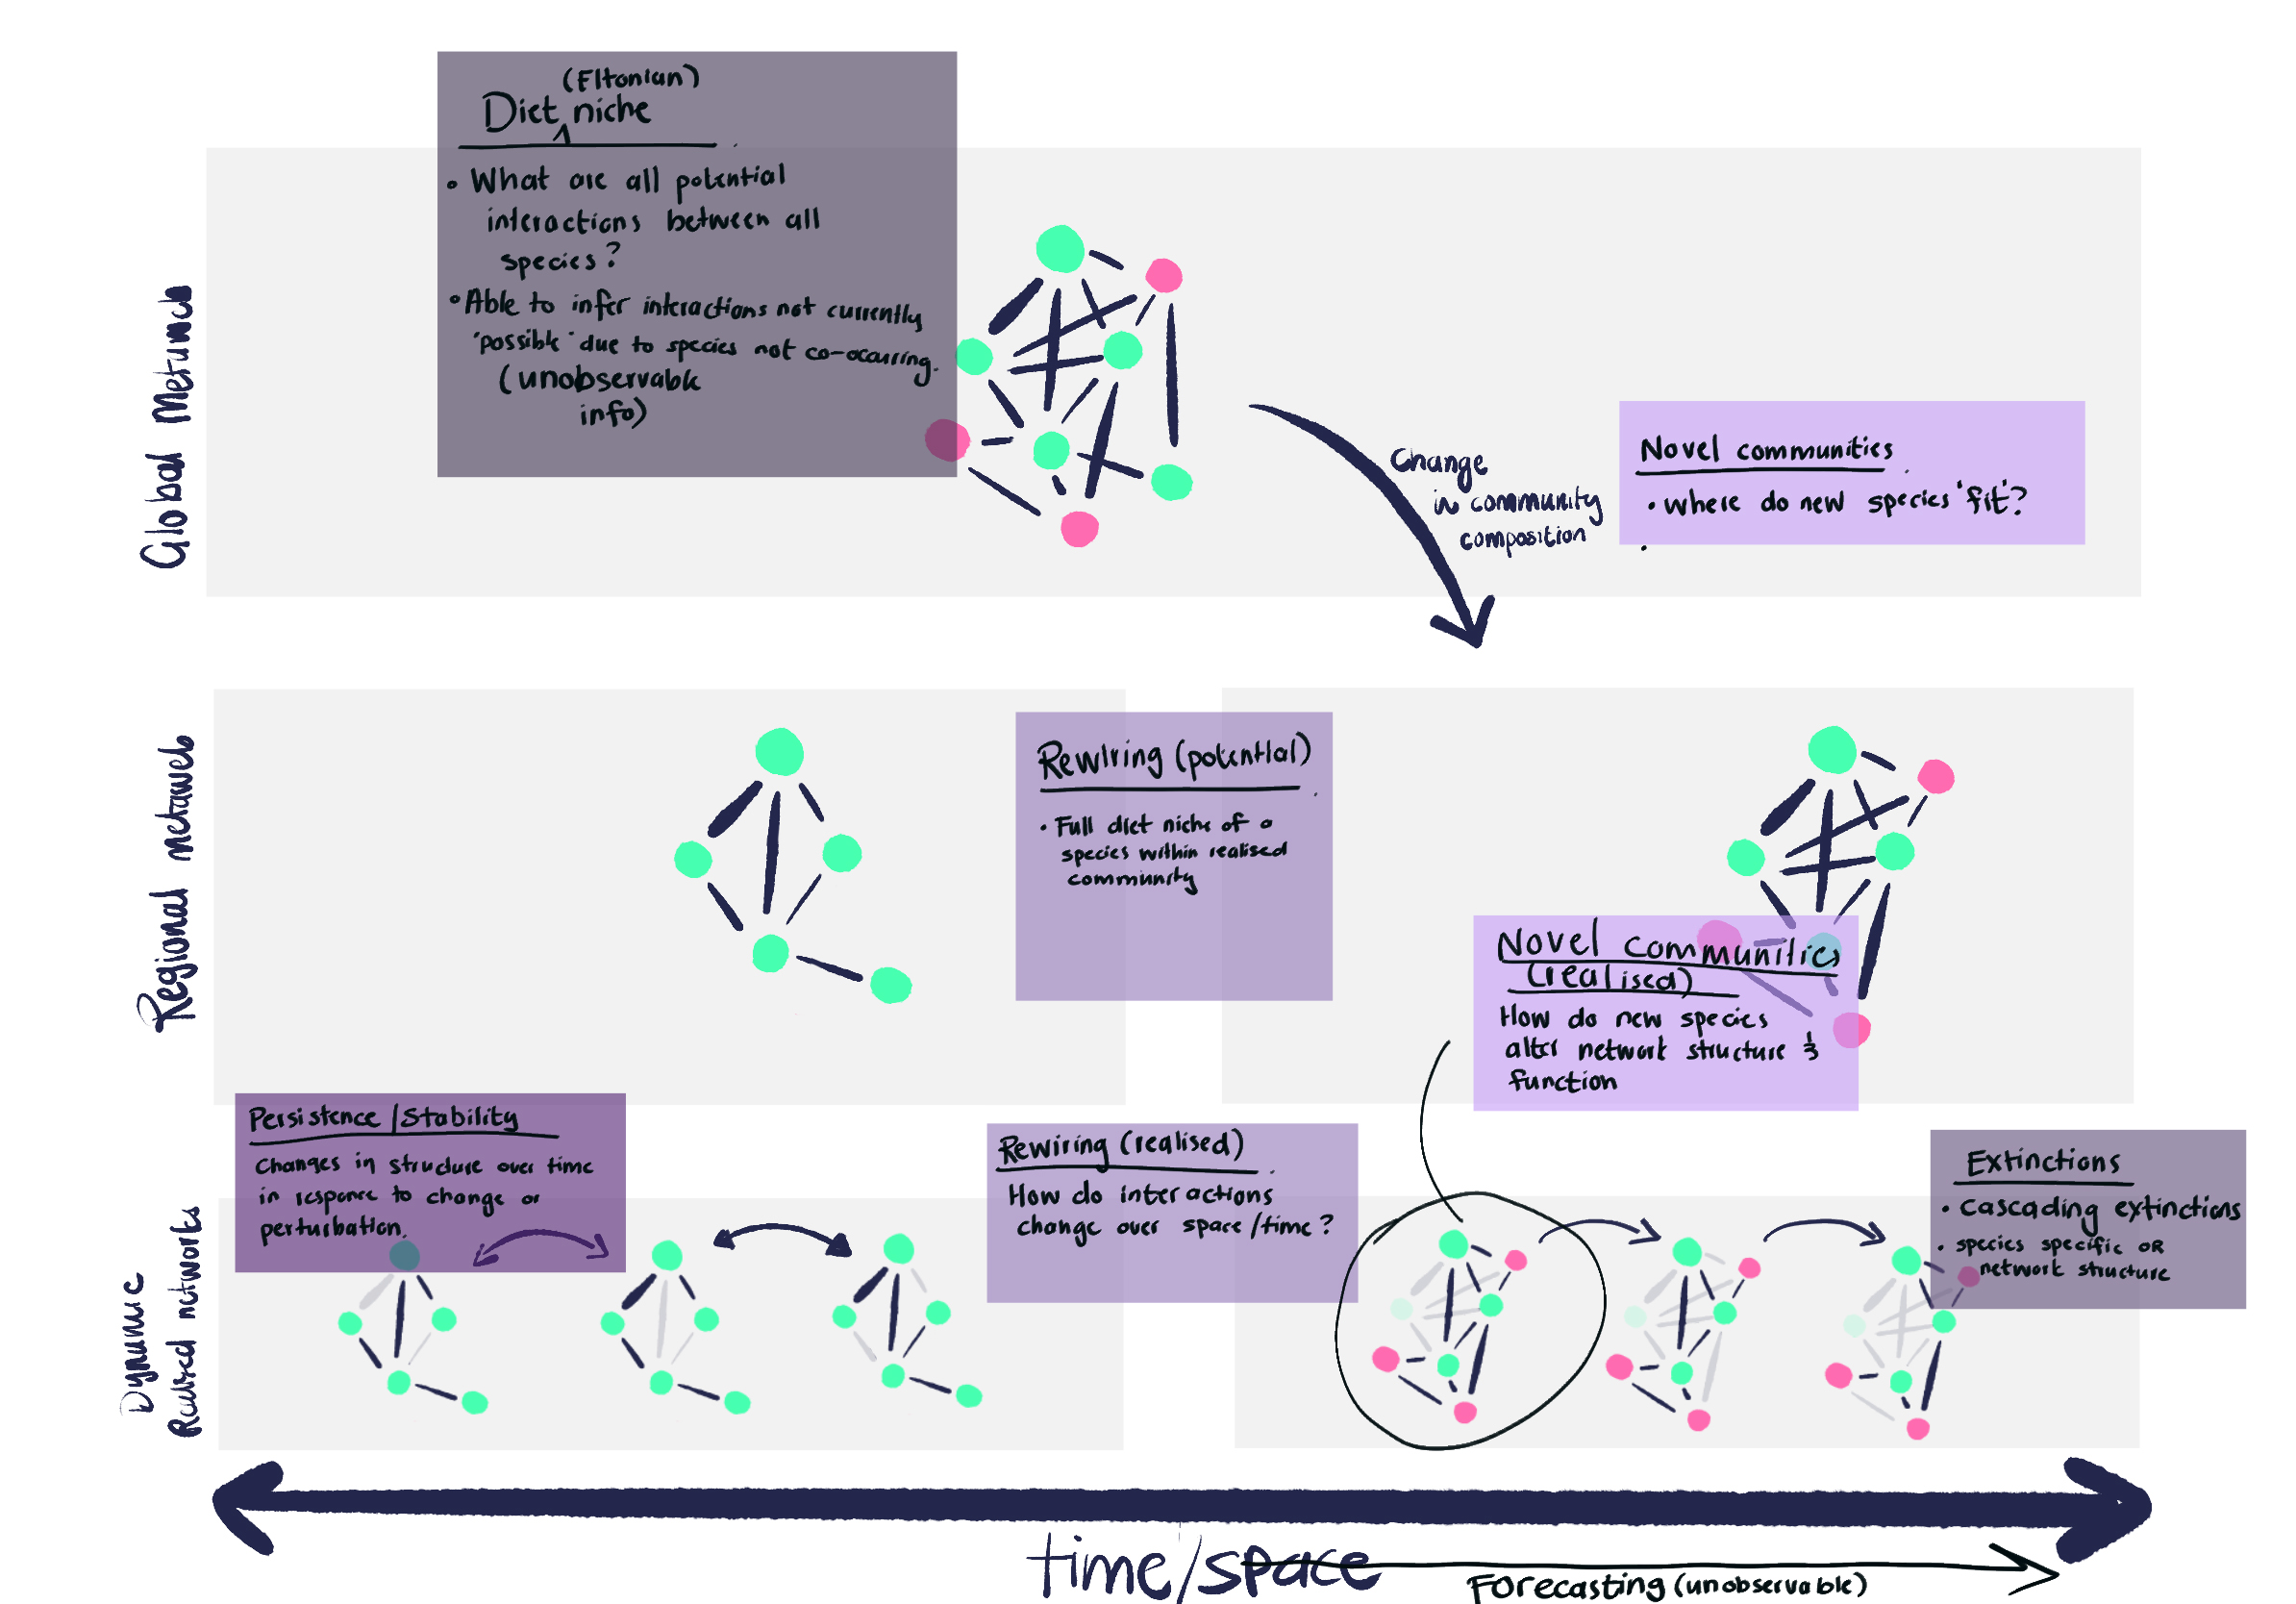 (Eltonian)
Diet niche
• What are all potential
interactions between all
species?
• Able to infer interactions not currently
'possible' due to species not co-occurring.
(unobservable
info)
Global Metaweb
Change
in community
composition
Novel communities
• where do new species 'fit'?
Regional metaweb
Rewiring (potential)
• Full diet niche of a
species within realised
community
Novel communities
(realised)
How do new species
alter network structure &
function
Persistence/Stability
Changes in structure over time
in response to change or
perturbation.
Rewiring (realised)
How do interactions
change over space/time?
Extinctions
• cascading extinctions
• species specific OR
network structure
Dynamic
Realised networks
time/space
Forecasting (unobservable)